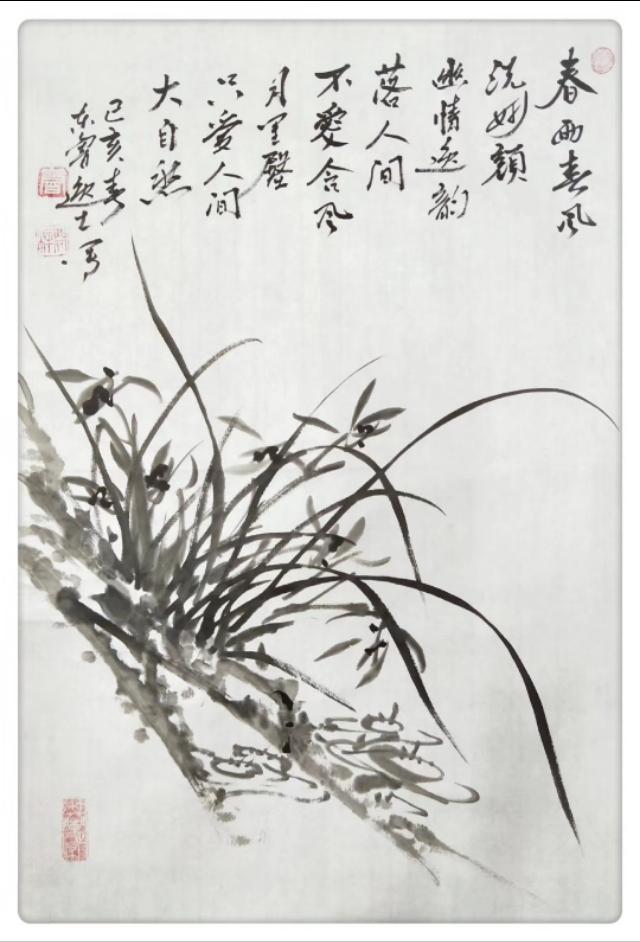 春雨春风
洗妙颜
幽情逸韵
落人间
不爱含风
月里
只爱人间
大自然
己亥春
东鲁逸士写